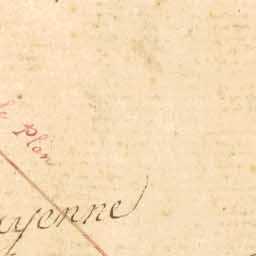 le plan
ayenne